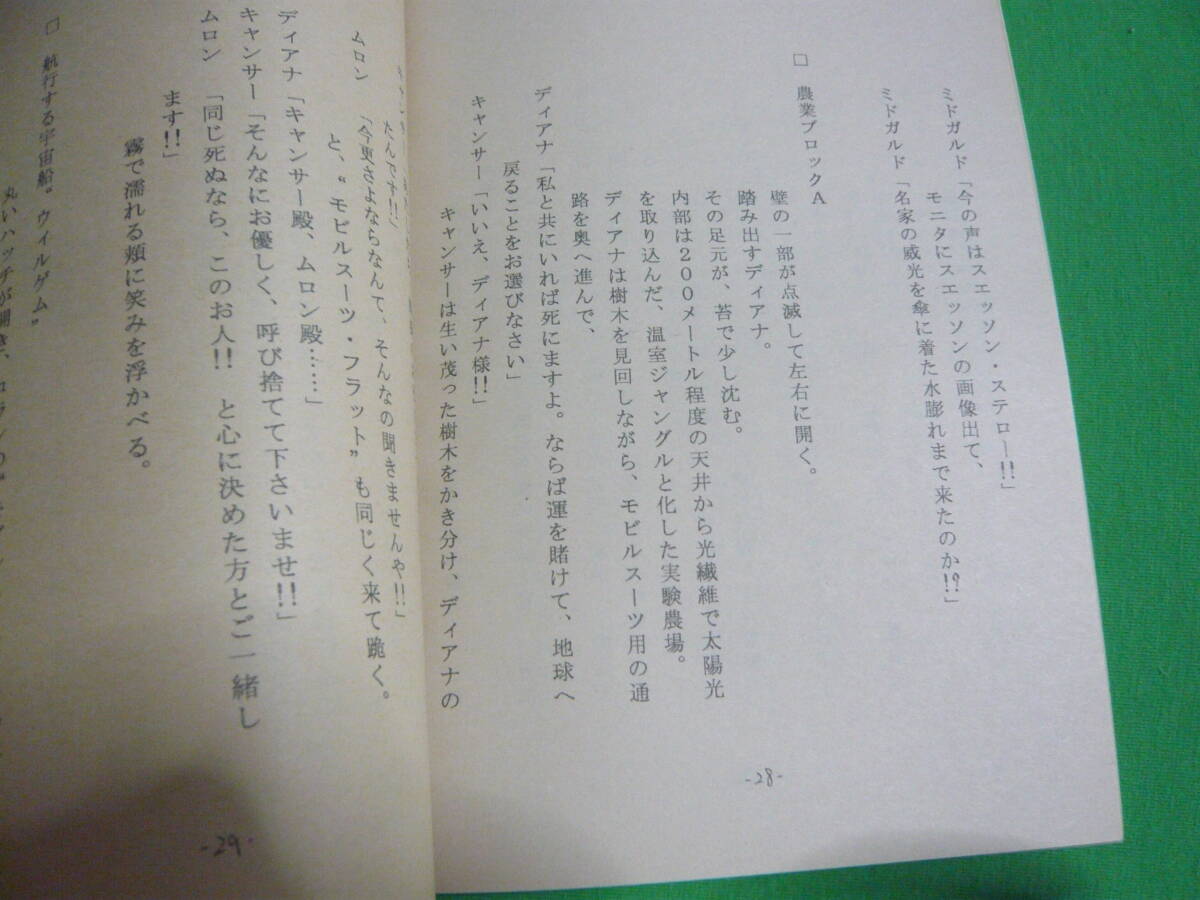 ミドガルド「今の声はスエッソン・ステロー!!」
モニタにスエッソンの画像出て、
ミドガルド「名家の威光を傘に着た水膨れまで来たのか!?」
□ 農業ブロックA
壁の一部が点滅して左右に開く。
踏み出すディアナ。
その足元が、苔で少し沈む。
内部は200メートル程度の天井から光繊維で太陽光
を取り込んだ、温室ジャングルと化した実験農場。
ディアナは樹木を見回しながら、モビルスーツ用の通
路を奥へ進んで、
ディアナ「私と共にいれば死にますよ。ならば運を賭けて、地球へ
戻ることをお選びなさい」
キャンサー「いいえ、ディアナ様!!」
キャンサーは生い茂った樹木をかき分け、ディアナの
-28-
たんです!!」
ムロン 「今更さよならなんて、そんなの聞きませんや!!」
と、“モビルスーツ・フラット”も同じく来て跪く。
ディアナ「キャンサー殿、ムロン殿……」
キャンサー「そんなにお優しく、呼び捨てて下さいませ!!」
ムロン 「同じ死ぬなら、このお人!! と心に決めた方とご一緒し
ます!!」
霧で濡れる頬に笑みを浮かべる。
□ 航行する宇宙船“ウィルゲム”
丸いハッチが開き、
-29-